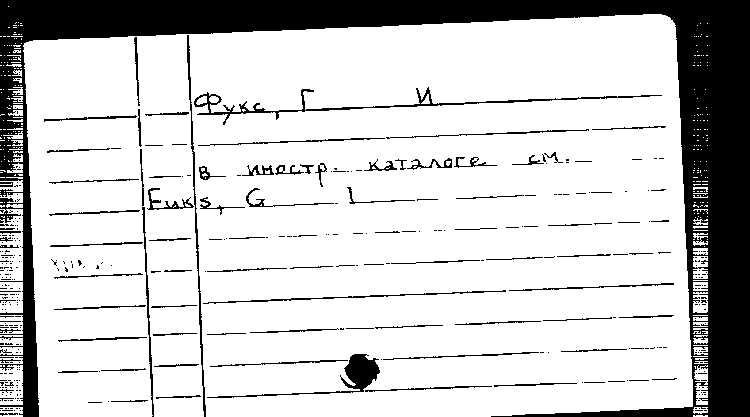 Фукс, Г И
в иностр. каталоге см.
Fuks, G I